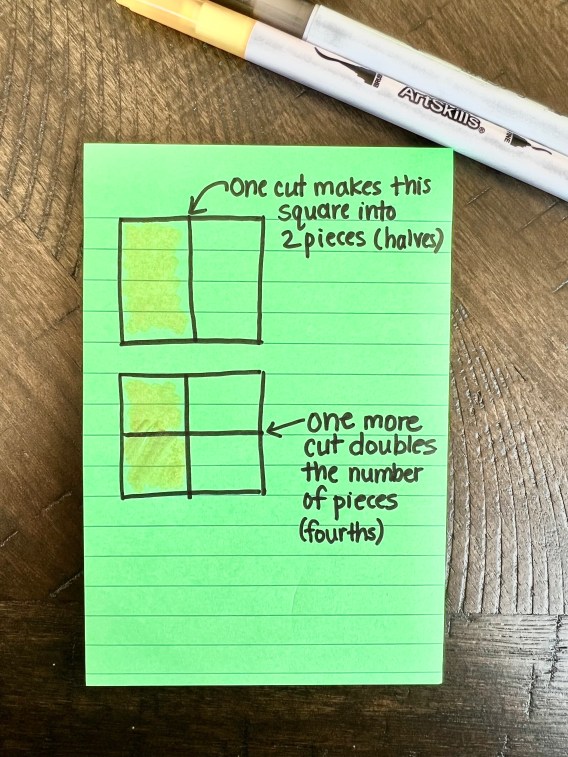 ArtSkills®
One cut makes this
square into
2 pieces (halves)
One more
cut doubles
the number
of pieces
(fourths)